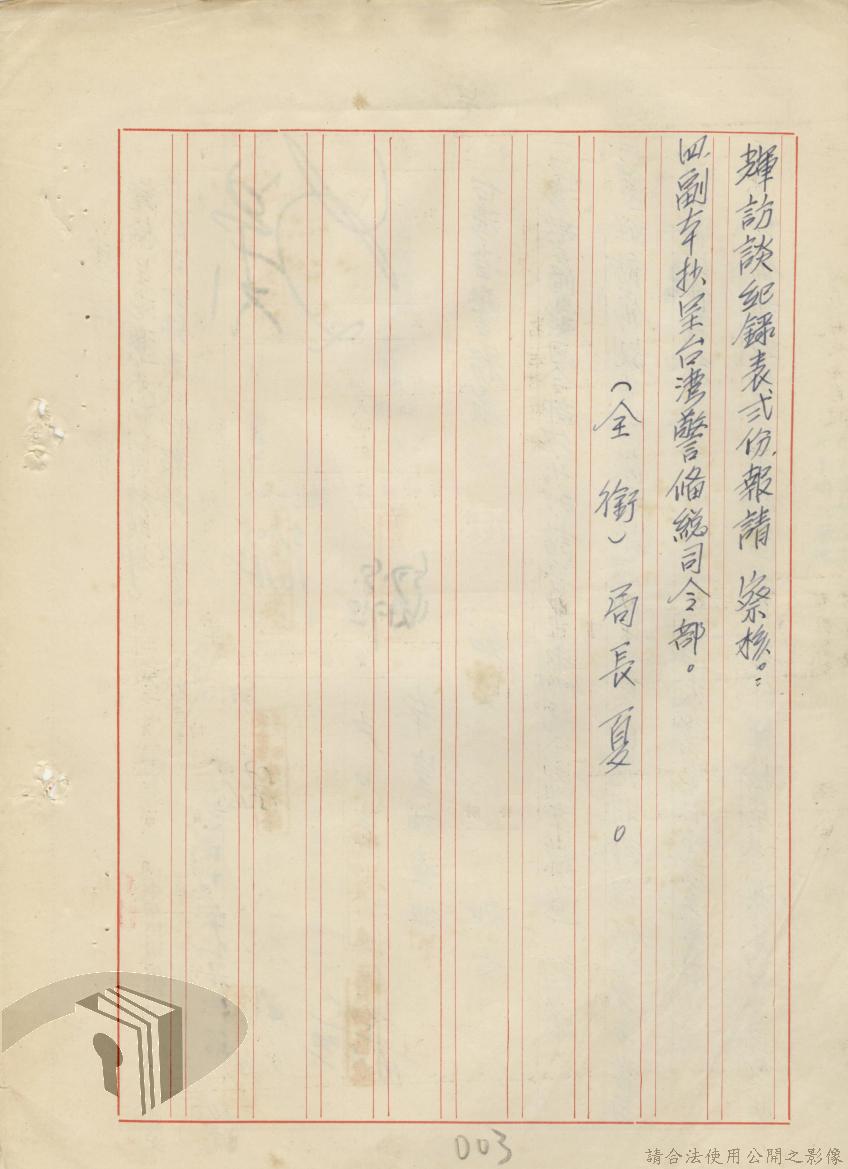 輝訪談紀錄表弍份，報請 察核。
四、副本抄呈台湾警備總司令部。
（全銜）局長夏 。
003
請合法使用公開之影像